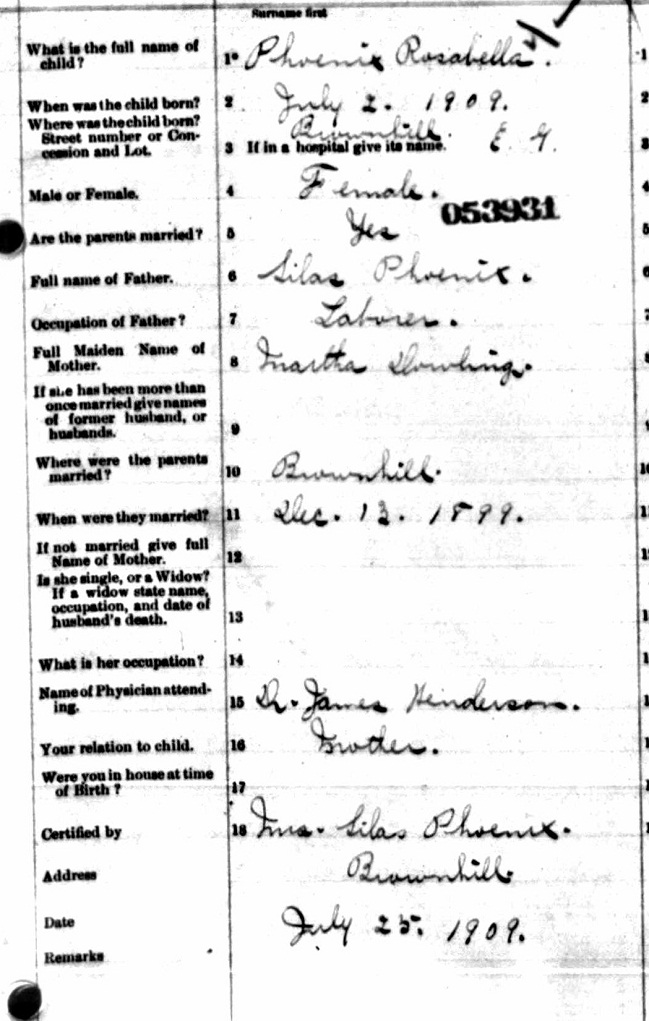 Surname first
What is the full name of child? 1 Phoenix Rosabella. 1
When was the child born? 2 July 2. 1909. 2
Where was the child born? Brownhill.
Street number or Con-
cession and Lot. 3 If in a hospital give its name. E. G. 3
Male or Female. 4 Female. 4
053931
Are the parents married? 5 Yes 5
Full name of Father. 6 Silas Phoenix. 6
Occupation of Father? 7 Laborer. 7
Full Maiden Name of
Mother. 8 Martha Dowling. 8
If she has been more than
once married give names
of former husband, or
husbands. 9
Where were the parents
married? 10 Brownhill. 10
When were they married? 11 Dec. 13. 1899.
If not married give full
Name of Mother. 12
Is she single, or a Widow?
If a widow state name,
occupation, and date of
husband's death. 13
What is her occupation? 14
Name of Physician attend-
ing. 15 Dr. James Henderson.
Your relation to child. 16 Mother.
Were you in house at time
of Birth? 17
Certified by 18 Mrs. Silas Phoenix.
Address Brownhill.
Date July 25. 1909.
Remarks